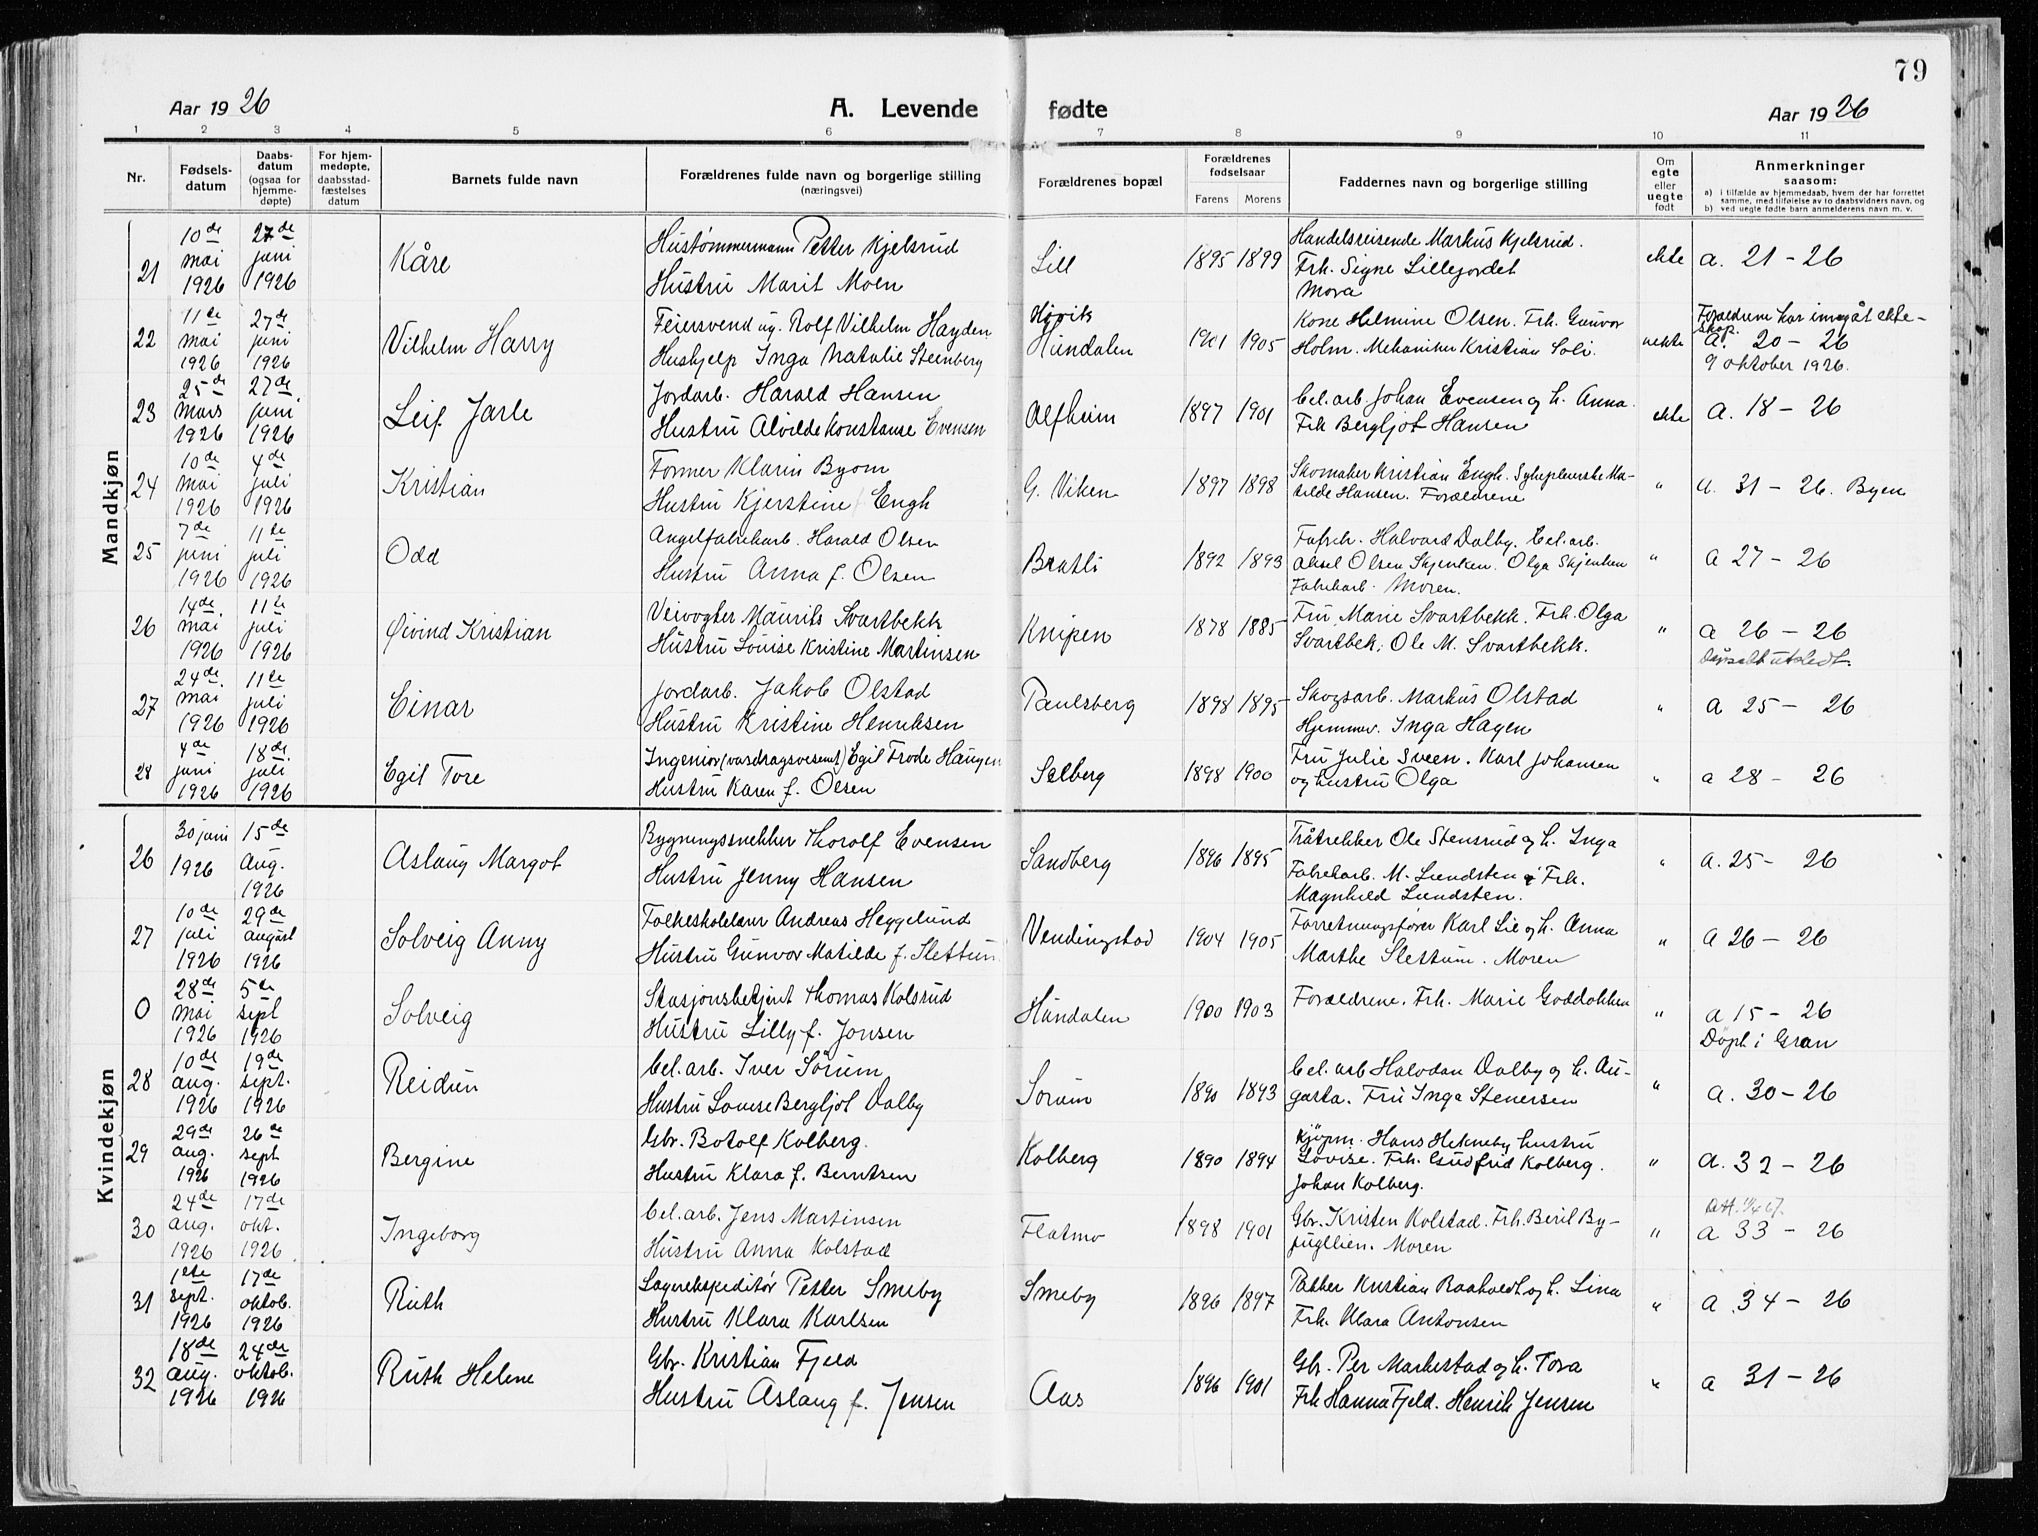 79
Aar 1926 A. Levende fødte Aar 1926
1 2 3 4 5 6 7 8 9 10 11
Nr.
Fødsels-
datum
Daabs-
datum
(ogsaa for
hjemme-
døpte)
For hjem-
medøpte,
daabsstad-
fæstelses
datum
Barnets fulde navn
Forældrenes fulde navn og borgerlige stilling
(næringsvei)
Forældrenes bopæl
Forældrenes
fødselsaar
Farens Morens
Faddernes navn og borgerlige stilling
Om
egte
eller
uegte
født
Anmerkninger
saasom:
a) i tilfælde av hjemmedaab, hvem der har forrettet
samme, med tilføielse av to daabsvidners navn, og
b) ved uegte fødte barn anmelderens navn m. v.
Mandkjøn
21
10de mai 1926
27de juni 1926
Kåre
Hustømmermann Petter Kjelsrud
Hustru Marit Moen
Lill
1895 1899
Handelsreisende Markus Kjelsrud.
Frk. Signe Lillejordet
Mora
ekte
a. 21 – 26
22
11te mai 1926
27de juni 1926
Vilhelm Harry
Feiersvend ug. Rolf Vilhelm Hayden
Hushjelp Inga Natalie Steenberg
Høvik
Hundalen
1901 1905
Kone Helmine Olsen. Frk. Gunvor
Holm. Mekaniker Kristian Soli.
uekte
Foreldrene har inngåt ekte-
skap.
a. 20 – 26
9 oktober 1926.
23
25de mars 1926
27de juni 1926
Leif Jarle
Jordarb. Harald Hansen
Hustru Alvilde Konstanse Evensen
Alfheim
1897 1901
Cel.arb. Johan Evensen og h. Anna.
Frk Bergljot Hansen
ekte
a. 18 – 26
24
10de mai 1926
4de juli 1926
Kristian
Former Klarin Byom
Hustru Kjerstine Engh
G. Viken
1897 1898
Skomaker Kristian Engh. Sykepleierske Ma-
tilde Hansen. Forældrene
"
a. 31 – 26. Byen
25
7de juni 1926
11te juli 1926
Odd
Angelfabrikarb. Harald Olsen
Hustru Anna f. Olsen
Bratli
1892 1893
Halvard Dalby. Cel.arb.
Aksel Olsen Skjenken. Olga Skjenken
Fabrikarb. Moren.
"
a 27 – 26
26
14de mai 1926
11te juli 1926
Øivind Kristian
Veivogter Maurits Svartbekk
Hustru Louise Kristine Martinsen
Knipen
1878 1885
Fru Marie Svartbekk. Frk. Olga
Svartbek. Ole M. Svartbekk.
"
a 26 – 26
utstedt.
27
24de mai 1926
11te juli 1926
Einar
Jordarb. Jakob Olstad
Hustru Kristine Henriksen
Paulsberg
1898 1895
Skogsarb. Markus Olstad
Hjemmev. Inga Hagen
"
a 25 – 26
28
4de juni 1926
18de juli 1926
Egil Tore
Ingeniør (vasdragsvesenet) Egil Frode Haugen
Hustru Karen f. Olsen
Solberg
1898 1900
Fru Julie Sveen. Karl Johansen
og hustru Olga
"
a 28 – 26
Kvindekjøn
26
30 juni 1926
15de Aug. 1926
Aslaug Margot
Bygningssnekker Thorolf Evensen
Hustru Jenny Hansen
Sandberg
1896 1895
Tråtrekker Ole Stensrud og h. Inga
Fabrikarb. M. Lundsten Frk.
Magnhild Lundsten.
"
a. 25 – 26
27
10de juli 1926
29de august 1926
Solveig Anny
Folkeskolelærer Andreas Heggelund
Hustru Gunvor Matilde f. Slettum
Vendingstad
1904 1905
Forretningsfører Karl Lie og h. Anna
Marthe Slettum. Moren
"
a 26 – 26
0
28de mai 1926
5te sept 1926
Solveig
Stasjonsbetjent Thomas Kolsrud
Hustru Lilly f. Jonsen
Hundalen
1900 1903
Forældrene. Frk. Marie Goddokken
"
a 15 – 26
Døpt i Gran
28
10de aug. 1926
19de sept. 1926
Reidun
Cel.arb. Iver Sørum
Hustru Lovise Bergljot Dalby
Sørum
1890 1893
Cel.arb Halvdan Dalby og h. Au-
gusta. Fru Inga Stenersen
"
a. 30 – 26
29
29de aug. 1926
26de sept 1926
Bergine
Gbr. Botolf Kolberg.
Hustru Klara f. Berntsen
Kolberg
1890 1894
Kjøpm. Hans Hekneby hustru
Lovise. Frk. Gudfrid Kolberg.
Johan Kolberg.
"
a. 32 – 26
30
24de aug. 1926
17de okt. 1926
Ingeborg
Cel.arb. Jens Martinsen
Hustru Anna Kolstad
Flatmo
1898 1901
Gbr. Kristen Kolstad. Frk. Beril By-
fugllien. Moren
"
a 33 – 26
31
1ste sept. 1926
17de oktob. 1926
Ruth
Lagerekspeditør Petter Smeby
Hustru Klara Karlsen
Smeby
1896 1897
Pakker Kristian Raaholdt og h. Lina
Frk. Klara Antonsen
"
a 34 – 26
32
18de aug. 1926
24de oktob. 1926
Ruth Helene
Gbr. Kristian Fjeld
Hustru Aslaug f. Jensen
Aas
1896 1901
Gbr. Per Markestad og h. Tora
Frk Hanna Fjeld. Henrik Jensen
"
a 31 – 26